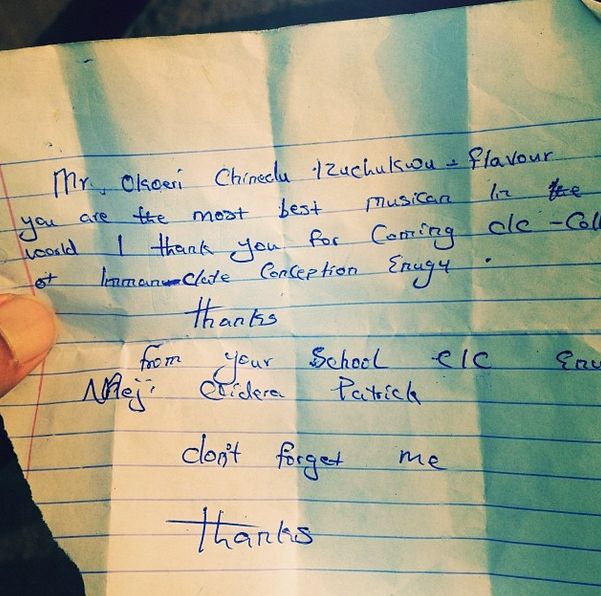 Mr. Okoeri Chinedu Izuchukwu - flavour
you are the most best musican in the
woold I thank you for Coming cIc - Coll
of Imman-Clate Conception Enugu .
Thanks
from your School cIc Enu
Nneji Chidera Patrick
don't forget me
Thanks